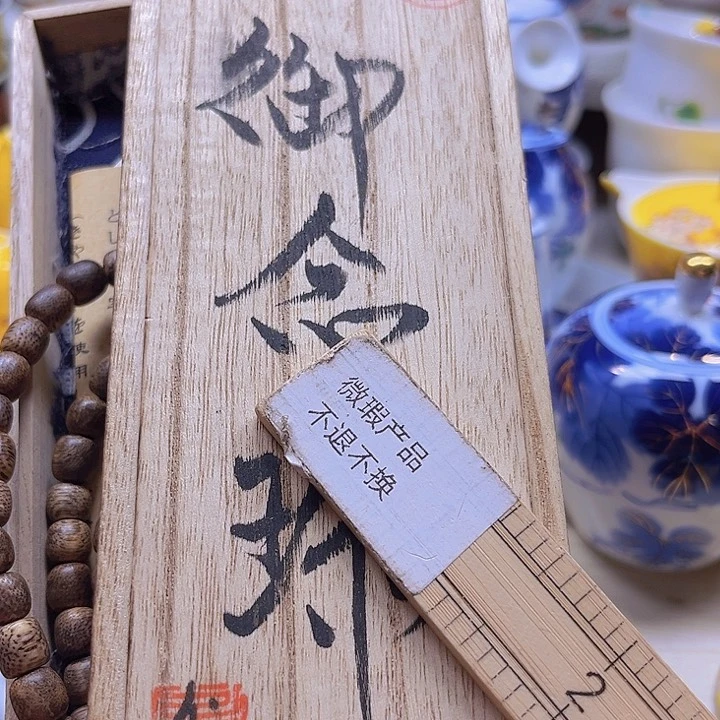 御
念
珠
微瑕产品
不退不换
2
使用